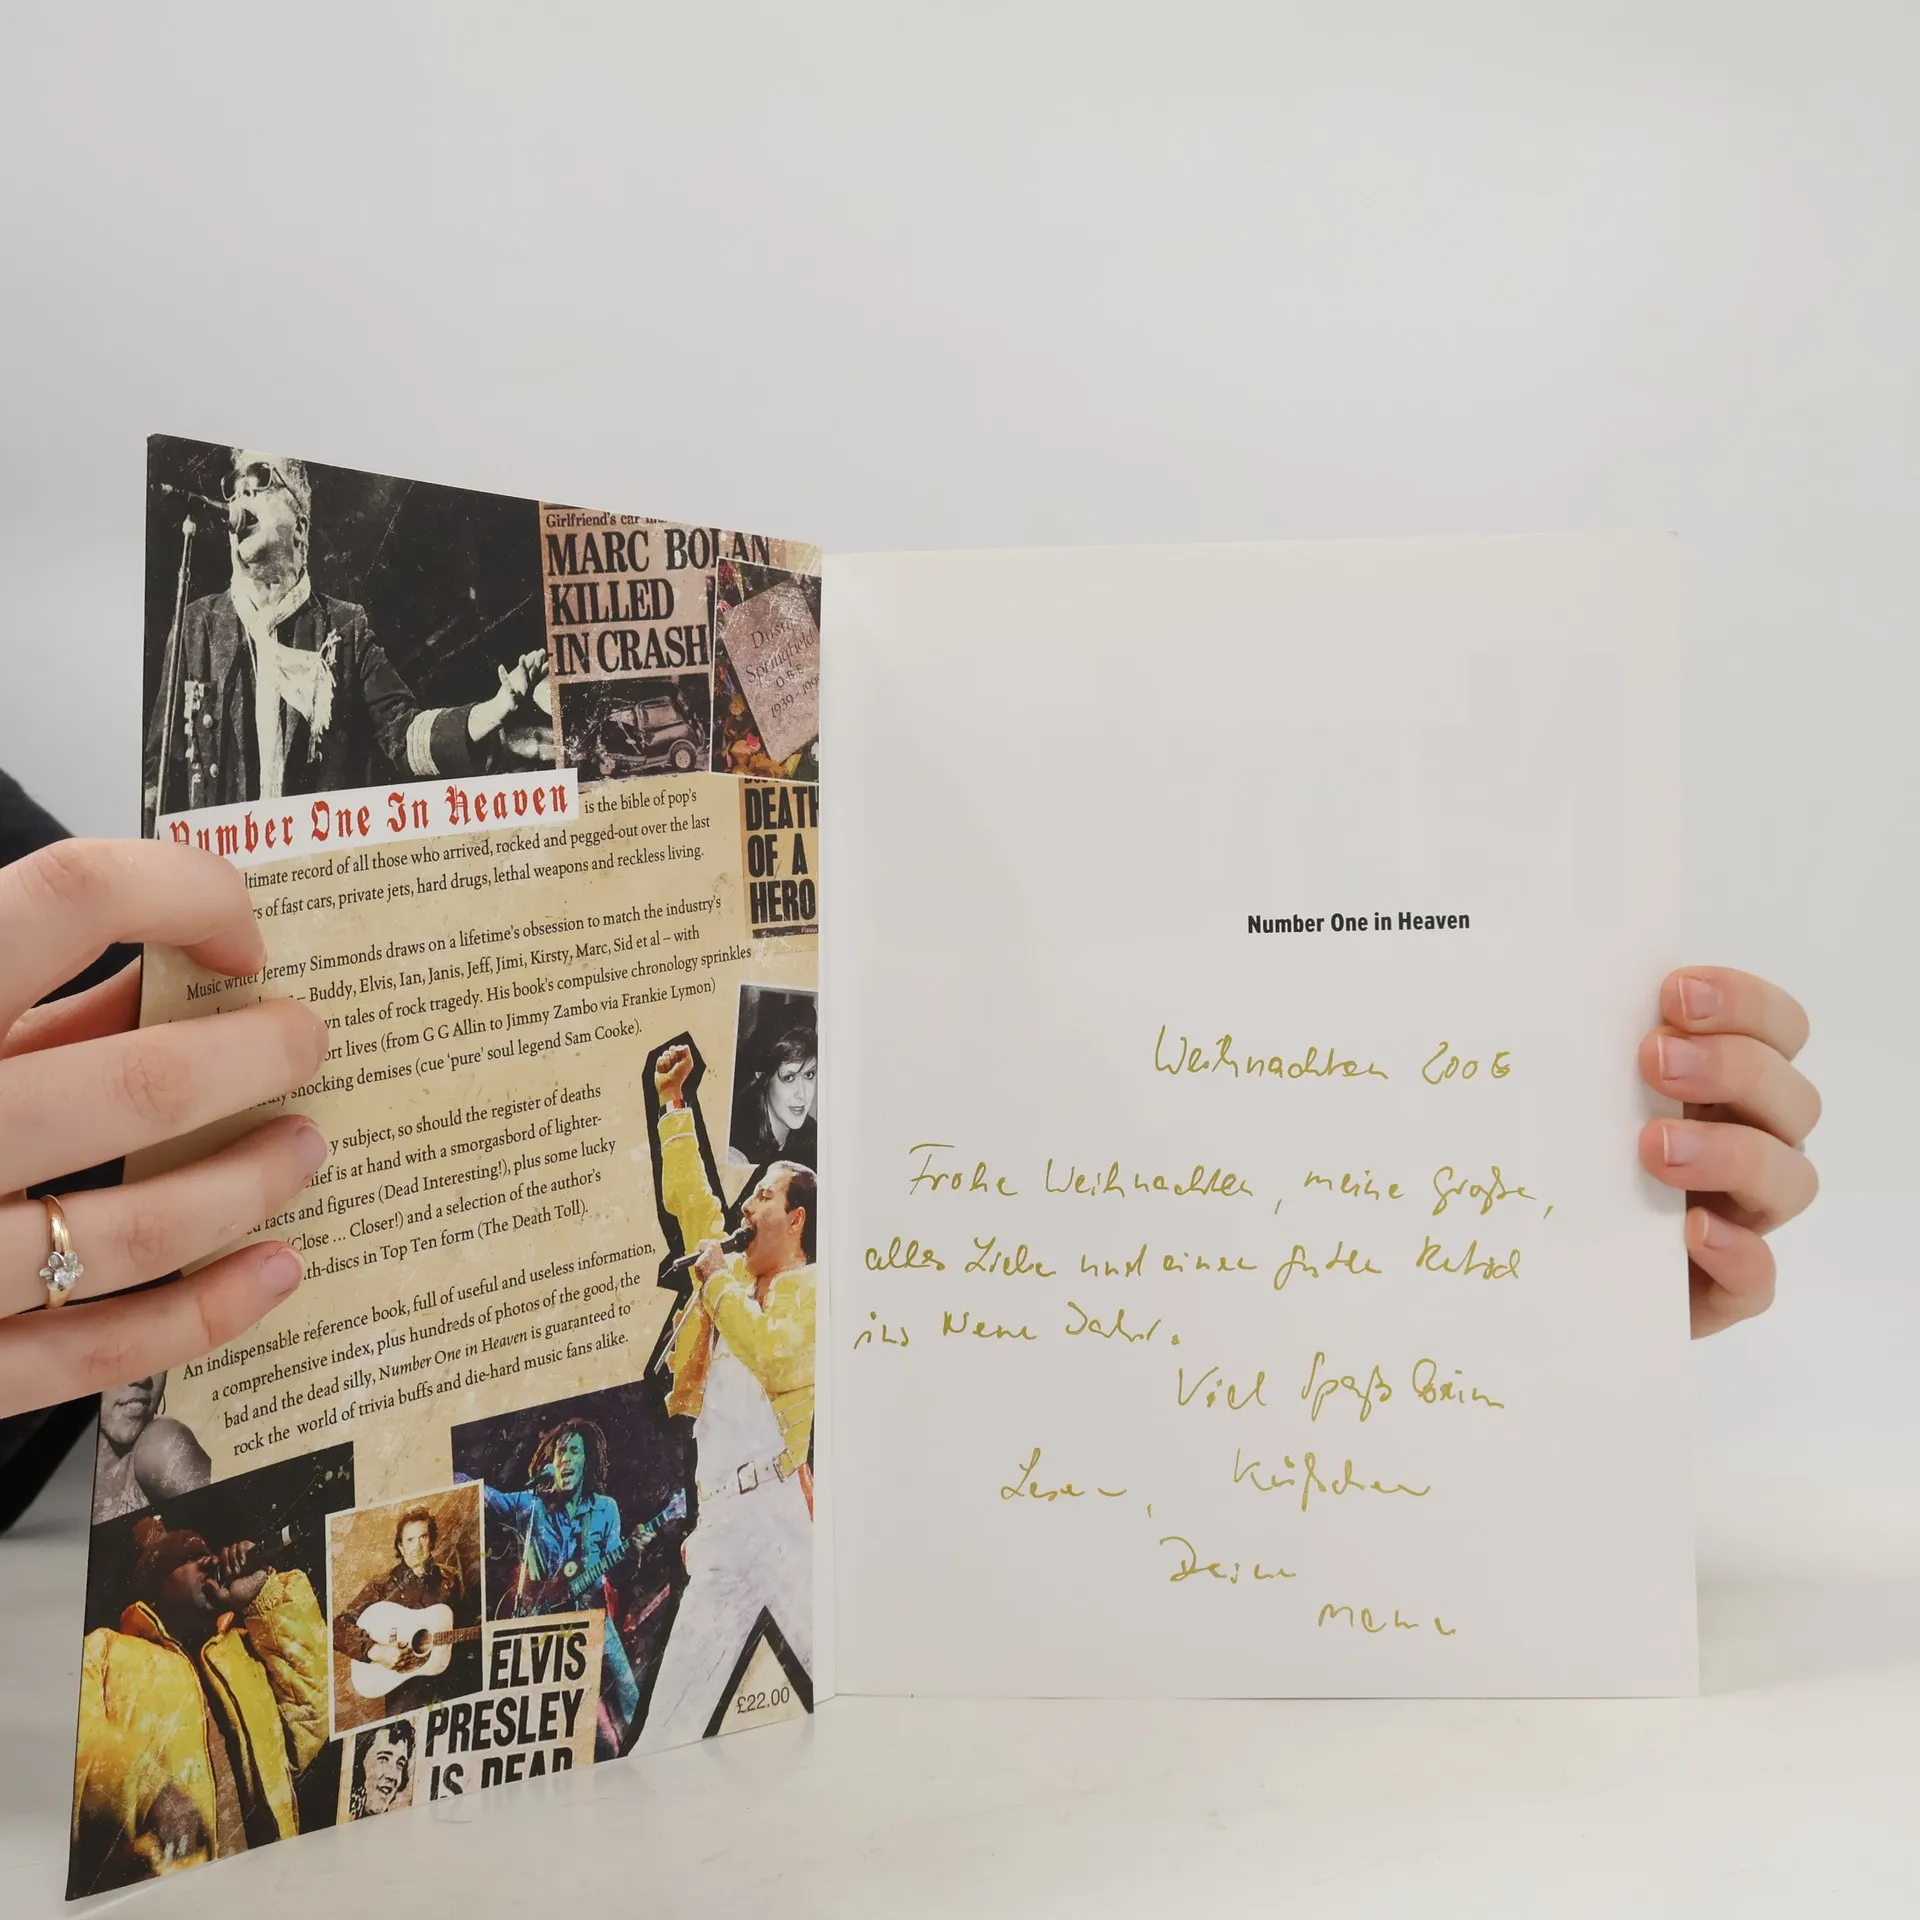 Girlfriend's car
MARC BOLAN
KILLED
IN CRASH
Dusty
Springfield
O.B.E
1939 - 199
DEATH
OF A
HERO
Number One In Heaven is the bible of pop's
ltimate record of all those who arrived, rocked and pegged-out over the last
rs of fast cars, private jets, hard drugs, lethal weapons and reckless living.
Music writer Jeremy Simmonds draws on a lifetime's obsession to match the industry's
– Buddy, Elvis, Ian, Janis, Jeff, Jimi, Kirsty, Marc, Sid et al – with
wn tales of rock tragedy. His book's compulsive chronology sprinkles
ort lives (from G G Allin to Jimmy Zambo via Frankie Lymon)
truly shocking demises (cue 'pure' soul legend Sam Cooke).
y subject, so should the register of deaths
lief is at hand with a smorgasbord of lighter-
facts and figures (Dead Interesting!), plus some lucky
(Close ... Closer!) and a selection of the author's
th-discs in Top Ten form (The Death Toll).
An indispensable reference book, full of useful and useless information,
a comprehensive index, plus hundreds of photos of the good, the
bad and the dead silly, Number One in Heaven is guaranteed to
rock the world of trivia buffs and die-hard music fans alike.
ELVIS
PRESLEY
IS DEAD
£22.00
Number One in Heaven
Weihnachten 2006
Frohe Weihnachten, meine Große,
alles Liebe und einen guten Rutsch
ins Neue Jahr.
Viel Spaß beim
Lesen, Küßchen
Deine
Mama